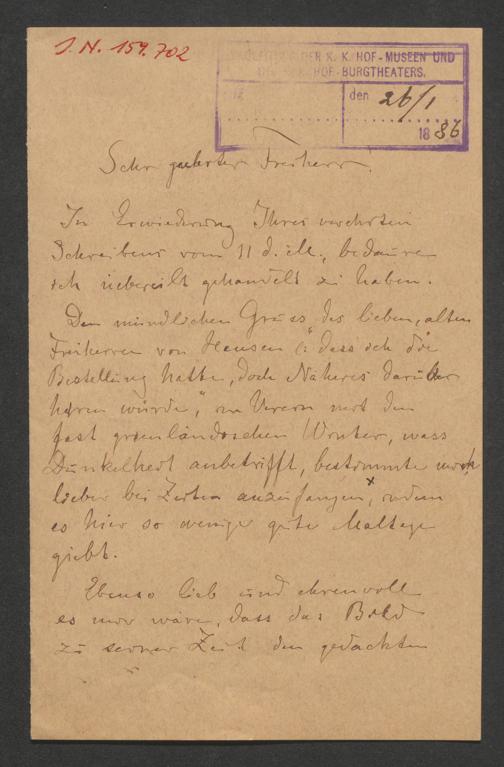 I. N. 159.702
DER K. K. HOF-MUSEEN UND
HOF-BURGTHEATERS.
den 26/1
1886
Sehr geehrter Freiherr!
In Erwiederung Ihres verehrten
Schreibens vom 11 d. M., bedaure
ich uebereilt gehandelt zu haben.
Den mündlichen Gruss des lieben, alten
Freiherren von Hansen (: dass ich die
Bestellung hatte, doch Näheres darüber
hören würde," im Verein mit den
fast grœnländischen Winter, wass
Dunkelheit anbetrifft, bestimmte mich
lieber bei Zeiten anzufangen, x indem
es hier so wenige gute Maltage
giebt.
Ebenso lieb und ehrenvoll
es mir wäre, dass das Bild
zu seiner Zeit den gedachten